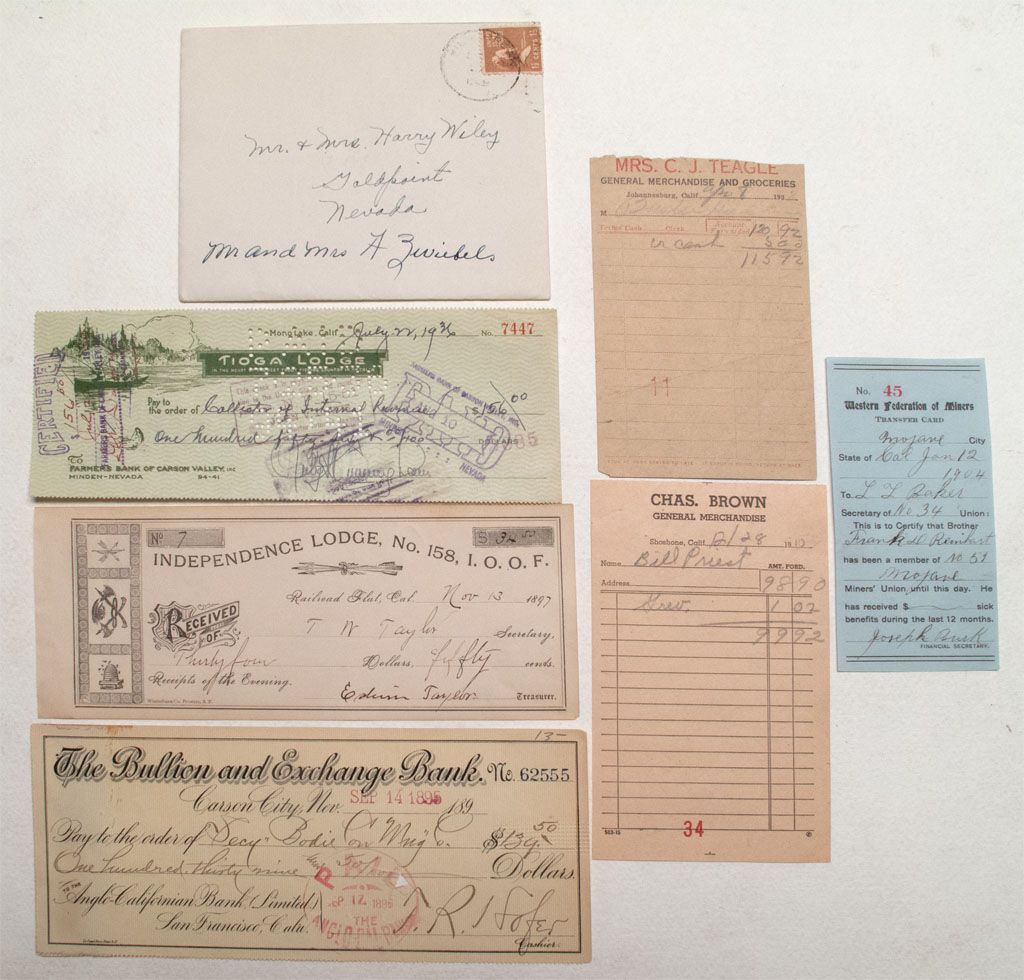 1½ CENTS 1½
Mr. & Mrs. Harry Wiley
Goldpoint
Nevada
Mr and Mrs A Zwiebels
Mono Lake, Calif. July 22, 1936 No. 7447
TIOGA LODGE
CERTIFIED
$156
Pay to
the order of Collector of Internal Revenue $156.00
One hundred fifty six & no/100 DOLLARS
To
FARMERS BANK OF CARSON VALLEY, INC
MINDEN-NEVADA 94-41
FARMERS BANK OF CARSON VALLEY, INC.
PAID
10
NEVADA
No 7 $ 34.50
INDEPENDENCE LODGE, No. 158, I. O. O. F.
Railroad Flat, Cal. Nov 13 1897
RECEIVED
OF
T W Taylor Secretary,
Thirty four Dollars, fifty cents.
Receipts of the Evening.
Edwin Taylor Treasurer.
13-
The Bullion and Exchange Bank. No. 62555
Carson City, Nev. SEP 14 1895 189
Pay to the order of Secy Bodie Con Mng Co. $139.50
One hundred thirty nine 50/100 Dollars.
TO THE
Anglo-Californian Bank, (Limited.)
San Francisco, Cala.
Cashier.
THE
MRS. C. J. TEAGLE
GENERAL MERCHANDISE AND GROCERIES
Johannesburg, Calif. 193
M
Clerk Account Forwarded 120 92
cr cash 5 00
115 92
11
CHAS. BROWN
GENERAL MERCHANDISE
Shoshone, Calif. 2/28 19
Name Bill Priest AMT. FORD.
Address 98 90
1 02
99 92
503-15
34
No. 45
Western Federation of Miners
TRANSFER CARD
Mojave City
State of Cal Jan 12
1904
To L L Baker
Secretary of No 34 Union:
This is to Certify that Brother
Frank D Reinhart
has been a member of No 51
Mojave
Miners' Union until this day. He
has received $ sick
benefits during the last 12 months.
Joseph Burk
FINANCIAL SECRETARY.